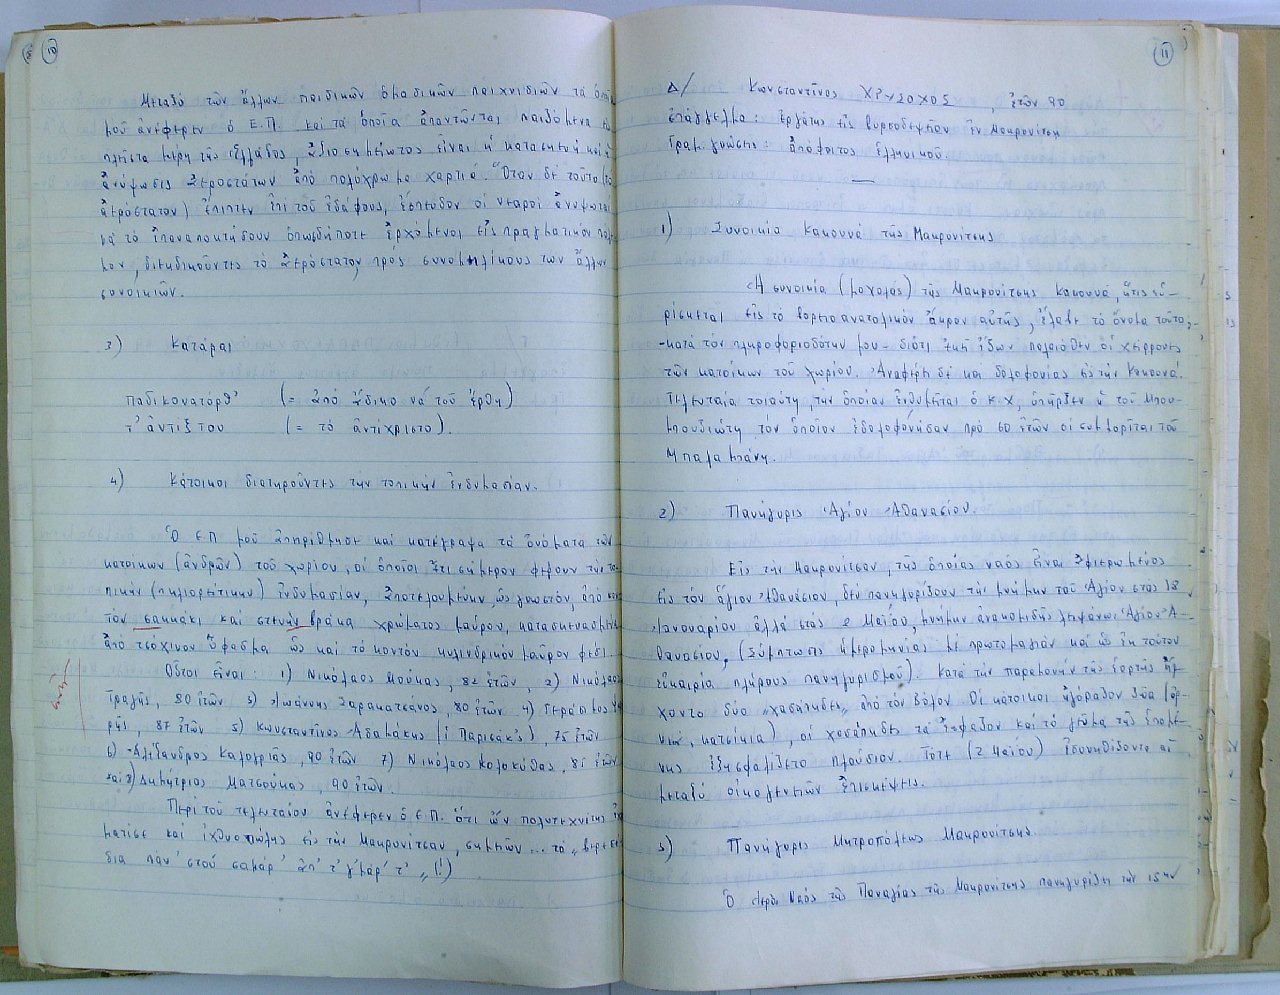 10
Μεταξύ τῶν ἄλλων παιδικῶν ὁμαδικῶν παιχνιδιῶν τά ὁποῖα
μοῦ ἀνέφερεν ὁ Ε.Π. καί τά ὁποῖα ἀπαντῶνται παιζόμενα
πλεῖστα μέρη τῆς Ἑλλάδος, ἀξιοσημείωτος εἶναι ἡ κατασκευή καί ἡ
ἀνύψωσις ἀεροστάτων ἀπό πολύχρωμα χαρτιά. Ὅταν δέ τοῦτο (τό
ἀερόστατον) ἔπιπτεν ἐπί τοῦ ἐδάφους, ἔσπευδον οἱ νεαροί
νά τό ἐπανακτήσουν ὁπωσδήποτε ἐρχόμενοι εἰς πραγματικόν πόλε-
μον, διεκδικοῦντες τό ἀερόστατον πρός συνομηλίκους των ἄλλων
συνοικιῶν.
3) Κατάραι
παδικονατόρθ' (= ἀπό ἄδικο νά τοῦ ἔρθη)
τ' ἀντίξ του (= τό ἀντίχριστο).
4) Κάτοικοι διατηροῦντες τήν τοπικήν ἐνδυμασίαν.
Ὁ Ε.Π μοῦ ἀπηρίθμησε καί κατέγραψα τά ὀνόματα τῶν
κατοίκων (ἀνδρῶν) τοῦ χωρίου, οἱ ὁποῖοι ἔτι σήμερον φέρουν τήν το-
πικήν (πηλιορείτικην) ἐνδυμασίαν, ἀποτελουμένην, ὡς γνωστόν, ἀπό κον
τόν σακκάκι καί στενήν βράκα χρώματος μαύρου, κατασκευασμένα
ἀπό τσόχινον ὕφασμα ὡς καί τό κοντόν κυλινδρικόν μαῦρον φέσι.
Οὗτοι εἶναι: 1) Νικόλαος Μούκας, 82 ἐτῶν, 2) Νικόλαος
Τραγῆς, 80 ἐτῶν 3) Ἰωάννης Σαρακατσάνος, 80 ἐτῶν 4) Γεράσιμος
ρῆς, 87 ἐτῶν 5) Κωνσταντῖνος Ἀδαμάκης (ἤ Παρισάκ'ς), 75 ἐτῶν
6) Ἀλέξανδρος Καλογρῃᾶς, 90 ἐτῶν 7) Νικόλαος Κολοκύθας, 81 ἐτῶν
καί 8) Δημήτριος Ματσούκας, 90 ἐτῶν.
Περί τοῦ τελευταίου ἀνέφερεν ὁ Ε.Π. ὅτι ὤν πολυτεχνίτης
μάτισε καί ἰχθυοπώλης εἰς τήν Μακρονίτσαν, σημεῖων... τό „
δια πάν' στού σαμάρ' ἀπ' τ' γ'μάρ' τ' „ (!)
11
Δ/ Κωνσταντῖνος ΧΡΥΣΟΧΟΣ, ἐτῶν 70
ἐπάγγελμα: ἐργάτης εἰς βυρσοδεψεῖον ἐν Μακρονίτση
Γραμ. γνώσεις: ἀπόφοιτος ἑλληνικοῦ.
1) Συνοικία Κακουνά τῆς Μακρονίτσης
Ἡ συνοικία (μαχαλάς) τῆς Μακρονίτσης Κακουνά, ἥτις εὑ-
ρίσκεται εἰς τό βορειοανατολικόν ἄκρον αὐτῆς, ἔλαβε τό ὄνομα τοῦτο,
-κατά τόν πληροφοριοδότην μου- διότι ἐκεῖ ἔζων παλαιόθεν οἱ χείρονες
τῶν κατοίκων τοῦ χωρίου. Ἀναφέρει δέ καί δολοφονίας εἰς τήν Κακουνά.
Τελευταία τοιαύτη, τήν ὁποίαν ἐνθυμεῖται ὁ Κ.Χ, ὑπῆρξεν ἡ τοῦ Μπου-
μπουδιώτη, τόν ὁποῖον ἐδολοφόνησαν πρό 60 ἐτῶν οἱ συμμορίται τοῦ
Μπαλαμπάνη.
2) Πανήγυρις Ἁγίου Ἀθανασίου.
Εἰς τήν Μακρονίτσαν, τῆς ὁποίας ναός εἶναι ἀφιερωμένος
εἰς τόν ἅγιον Ἀθανάσιον, δέν πανηγυρίζουν τήν μνήμην τοῦ Ἁγίου στάς 18
Ἰανουαρίου ἀλλά στάς 2 Μαΐου, μνήμην ἀνακομιδῆς λειψάνου Ἁγίου Ἀ-
θανασίου, (σύμπτωσις ἡμερομηνίας μέ πρωτομαγιάν καί ὡς ἐκ τούτου
εὐκαιρία πλήρους πανηγυρισμοῦ). Κατά τήν παραμονήν τῆς ἑορτῆς ἤρ-
χοντο δύο „χασάπηδες„ ἀπό τόν Βόλον. Οἱ κάτοικοι ἠγόραζον ζῶα (ἀρ-
νιά, κατσίκια), οἱ χασάπηδες τά ἔσφαζον καί τό γεῦμα τῆς ἑπομέ-
νης ἐξησφαλίζετο πλούσιον. Τότε (2 Μαΐου) ἐσυνηθίζοντο αἱ
μεταξύ οἰκογενειῶν ἐπισκέψεις.
3) Πανήγυρις Μητροπόλεως Μακρονίτσης
Ὁ Ἱερός Ναός τῆς Παναγίας τῆς Μακρονίτσης πανηγυρίζει τήν 15ην